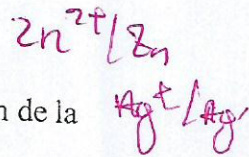 Zn²⁺/Zn
n de la Ag⁺/Ag